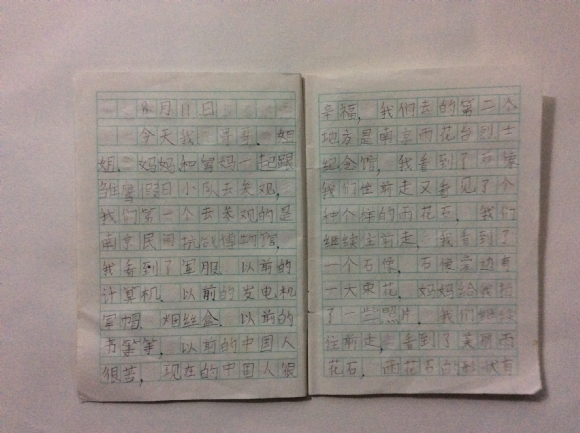 8月11日
今天我、哥哥、姐
姐、妈妈和舅妈一起跟
雏鹰假日小队去参观,
我们第一个去参观的是
南京民间抗战博物馆,
我看到了军服、以前的
计算机、以前的发电机
军帽、烟丝盒、以前的
书等等,以前的中国人
很苦,现在的中国人很
幸福,我们去的第二个
地方是南京雨花台烈士
纪念馆,我看到了石像
我们往前走又看见了个
样个样的雨花石,我们
继续往前走,我看到了
一个石像,石像旁边有
一大束花,妈妈给我拍
了一些照片,我们继续
往前走,看到了美丽雨
花石,雨花石的形状有